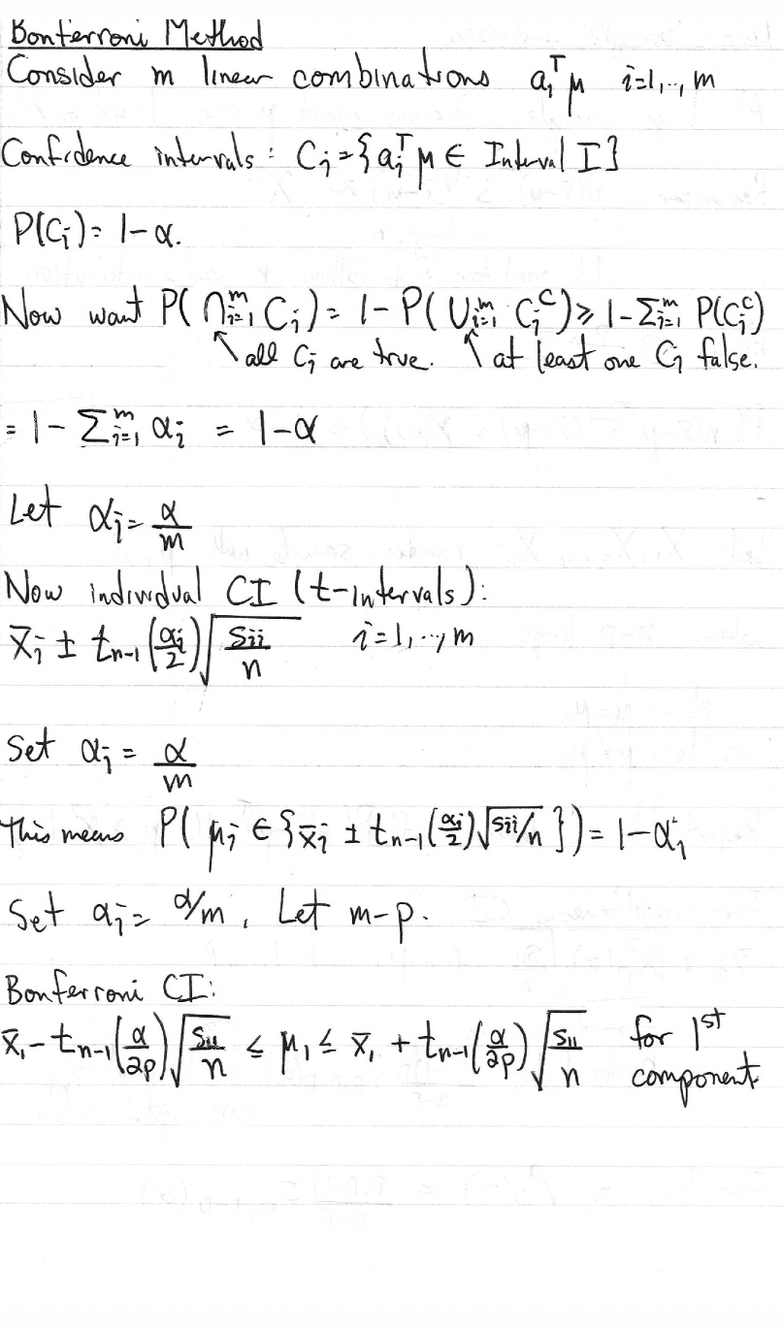 Bonferroni Method
Consider m linear combinations aᵢᵀμ i=1,..,m
Confidence intervals: Cᵢ={aᵢᵀμ ∈ Interval I}
P(Cᵢ)= 1-α.
Now want P(⋂ᵢ₌₁ᵐ Cᵢ)= 1-P(⋃ᵢ₌₁ᵐ Cᵢᶜ)≥ 1-Σᵢ₌₁ᵐ P(Cᵢᶜ)
↖all Cᵢ are true. ↖at least one Cᵢ false.
= 1- Σᵢ₌₁ᵐ αᵢ = 1-α
Let αᵢ= α/m
Now individual CI (t-intervals):
x̄ᵢ ± tₙ₋₁(αᵢ/2)√(sᵢᵢ/n) i=1,..,m
Set αᵢ = α/m
This means P( μᵢ ∈ {x̄ᵢ ± tₙ₋₁(αᵢ/2)√(sᵢᵢ/n) })= 1-αᵢ
Set αᵢ= α/m. Let m-p.
Bonferroni CI:
x̄₁- tₙ₋₁(α/2p)√(s₁₁/n) ≤ μ₁ ≤ x̄₁ + tₙ₋₁(α/2p)√(s₁₁/n) for 1st
component